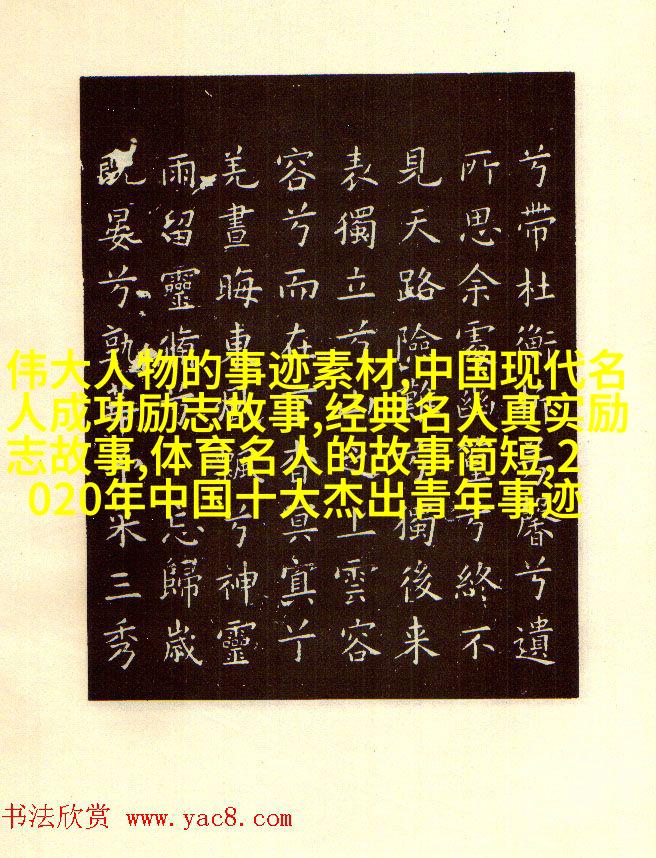 兮帶杜衡馨兮遺
所思余處幽篁兮終不
見天路險難兮獨後来
表獨立兮上雲容
容兮而在杳冥冥兮
羌晝晦東風飄兮神靈
雨留靈脩忘歸歲
既晏兮孰三秀
伟大人物的事迹素材,中国现代名
人成功励志故事,经典名人真实励
志故事,体育名人的故事简短,2
020年中国十大杰出青年事迹
书法欣赏 www.yac8.com